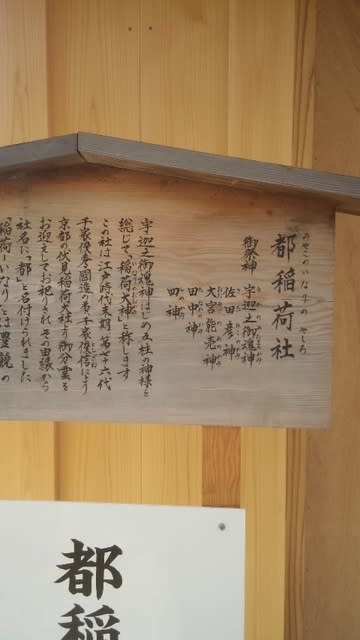 都稲荷社
みやこのいなりの やしろ
御祭神 宇迦之御魂神
佐田彦神
大宮能売神
田中神
四神
宇迦之御魂神はじめ五柱の神様を
総じて、稲荷大神と称します
この社は江戸時代末期 第七十六代
千家俊秀國造の弟、千家俊信により
京都の伏見稲荷大社より御分霊を
お迎えしてお祀りされ その由縁から
社名に「都」と名付けられました
「稲荷＝いなり」とは豊饒の
都稲